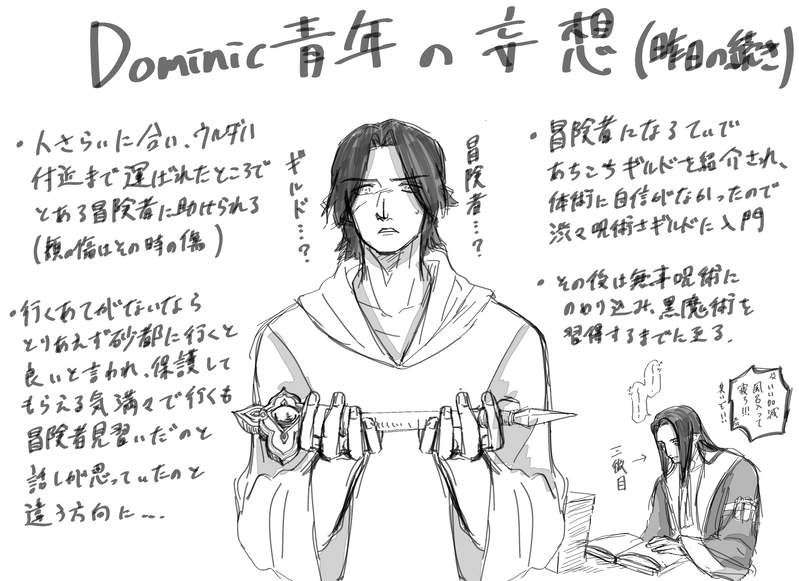 Dominic青年の妄想(昨日の続き)
・人さらいに合い、ウルダハ
付近まで運ばれたところで
とある冒険者に助けられる
(頬の傷はその時の傷)
・行くあてがないなら
とりあえず砂都に行くと
良いと言われ、保護して
もらえる気満々で行くも
冒険者見習いだのと
話しが思っていたのと
違う方向に…
ギルド…?
冒険者…?
・冒険者になるていで
あちこちギルドを紹介され、
体術に自信がなかったので
渋々呪術士ギルドに入門
・その後は無事呪術に
のめり込み、黒魔術を
習得するまでに至る.
三徹目
いい加減
風呂入って
寝ろ!!!
臭いぞ!!